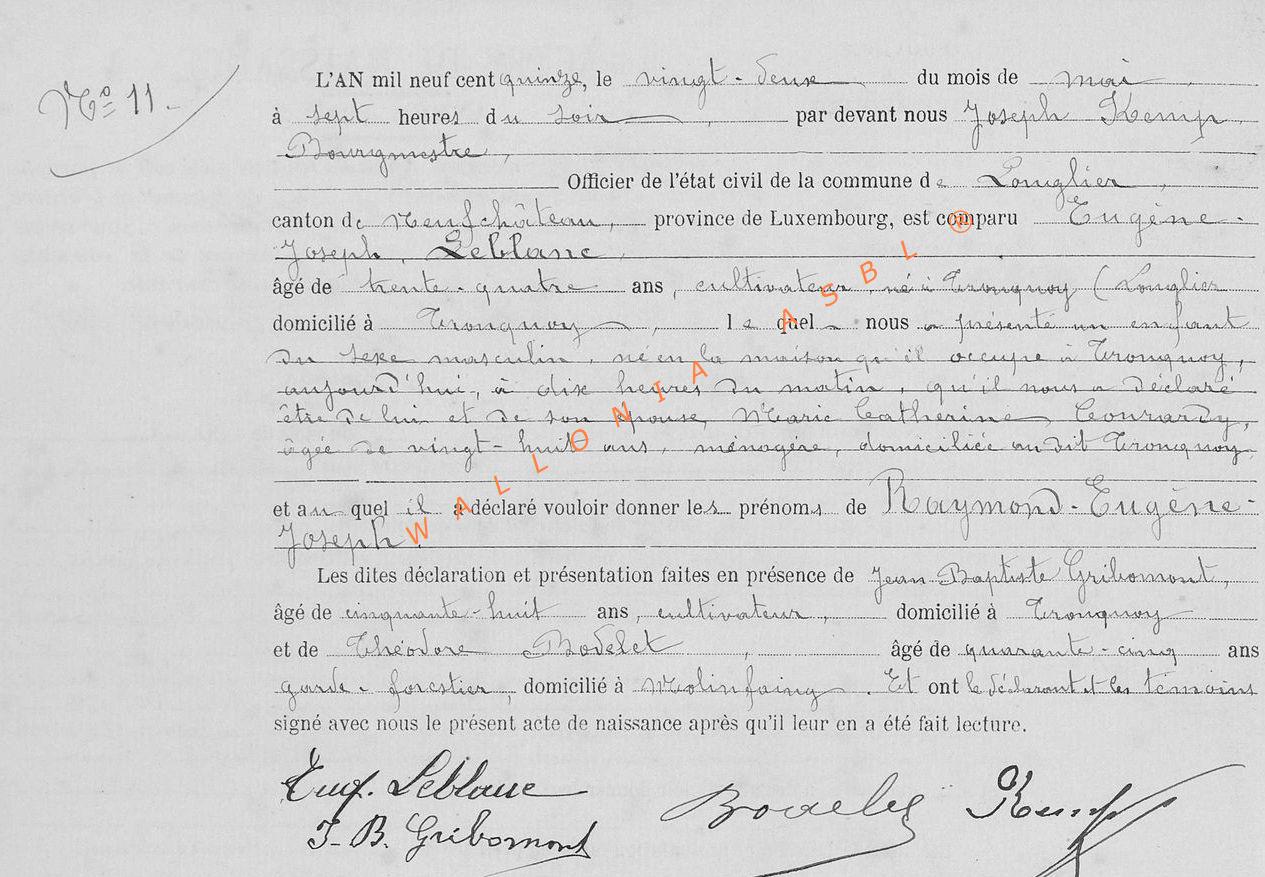 Nº 11.
L'AN mil neuf cent quinze, le vingt-deux du mois de mai
à sept heures du soir, par devant nous Joseph Kemp,
Bourgmestre,
Officier de l'état civil de la commune de Longlier,
canton de Neufchâteau, province de Luxembourg, est comparu Eugène-
Joseph, Leblanc,
âgé de trente-quatre ans, cultivateur, né à Tronquoy (Longlier
domicilié à Tronquoy, lequel nous a présenté un enfant
du sexe masculin, né en la maison qu'il occupe à Tronquoy,
aujourd'hui, à dix heures du matin, qu'il nous a déclaré
être de lui et de son épouse, Marie Catherine Courardy,
âgée de vingt-huit ans, ménagère, domiciliée au dit Tronquoy,
et auquel il a déclaré vouloir donner les prénoms de Raymond-Eugène-
Joseph.
Les dites déclaration et présentation faites en présence de Jean Baptiste Gribomont,
âgé de cinquante-huit ans, cultivateur, domicilié à Tronquoy
et de Théodore Bodelet, âgé de quarante-cinq ans
garde-forestier, domicilié à Molinfaing. Et ont le déclarant et les témoins
signé avec nous le présent acte de naissance après qu'il leur en a été fait lecture.
Eug. Leblanc
J-B. Gribomont
Bodelet
Kemp
WALLONIA ASBL ®